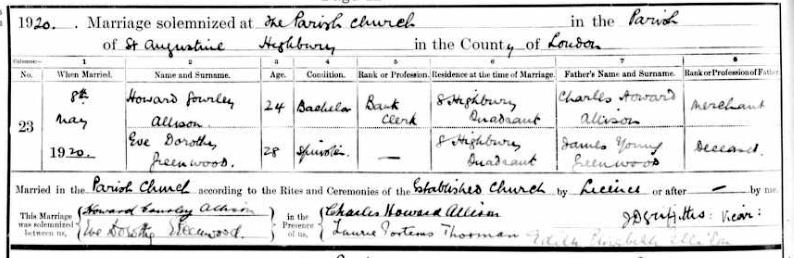 1920. Marriage solemnized at the Parish Church in the Parish
of St Augustine Highbury in the County of London
Columns:— 1 2 3 4 5 6 7 8
No. When Married. Name and Surname. Age. Condition. Rank or Profession. Residence at the time of Marriage. Father's Name and Surname. Rank or Profession of Father
23
8th May 1920. Howard Allison. 24 Bachelor Bank Clerk 8 Highbury Quadrant Charles Howard Allison Merchant
Eve Dorothy Greenwood. 28 Spinster — 8 Highbury Quadrant James Young Greenwood Deceased.
Married in the Parish Church according to the Rites and Ceremonies of the Established Church by Licence or after — by me,
This Marriage was solemnized between us, Howard Allison in the Presence of us, Charles Howard Allison
Eve Dorothy Greenwood. Laurie Porteous Thorman Edith Allison J D Griffiths: Vicar: